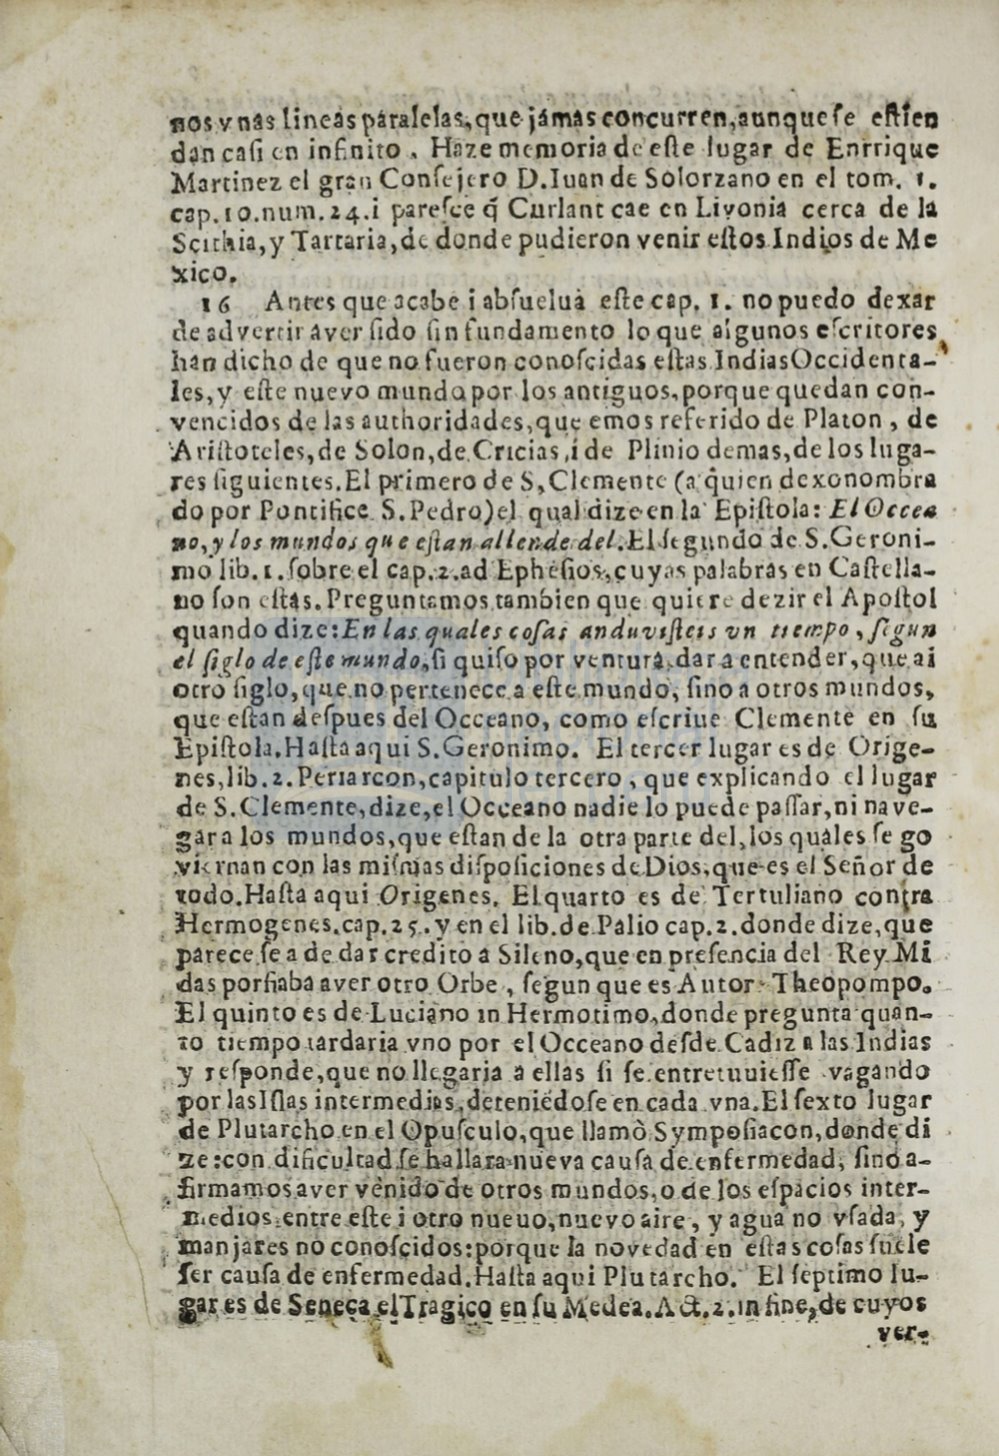 nos vnas lineas paralelas, que jámas concurren, aunque ſe eſtien
dan caſi en infinito. Haze memoria de eſte lugar de Enrrique
Martinez el gran Conſejero D. Iuan de Solorzano en el tom. 1.
cap. 10. num. 24. i pareſce q̃ Curlant cae en Livonia cerca de la
Scithia, y Tartaria, de donde pudieron venir eſtos Indios de Me
xico.
16 Antes que acabe i abſuelua eſte cap. 1. no puedo dexar
de advertir aver ſido ſin fundamento lo que algunos eſcritores
han dicho de que no fueron conoſcidas eſtas Indias Occidenta-
les, y eſte nuevo mundo por los antiguos, porque quedan con-
vencidos de las authoridades, que emos referido de Platon, de
Ariſtoteles, de Solon, de Cricias, i de Plinio demas, de los luga-
res ſiguientes. El primero de S, Clemente (a quien dexo nombra
do por Pontifice S. Pedro) el qual dize en la Epiſtola: El Occea
no, y los mundos que eſtan allende del. El ſegundo de S. Geroni-
mo lib. 1. ſobre el cap. 2. ad Epheſios, cuyas palabras en Caſtella-
no ſon eſtas. Preguntamos tambien que quiere dezir el Apoſtol
quando dize: En las quales coſas anduviſteis vn tiempo, ſegun
el ſiglo de eſte mundo, ſi quiſo por ventura, dar a entender, que ai
otro ſiglo, que no pertenece a eſte mundo, ſino a otros mundos,
que eſtan deſpues del Occeano, como eſcriue Clemente en ſu
Epiſtola. Haſta aqui S. Geronimo. El tercer lugar es de Orige-
nes, lib. 2. Periarcon, capitulo tercero, que explicando el lugar
de S. Clemente, dize, el Occeano nadie lo puede paſſar, ni nave-
gar a los mundos, que eſtan de la otra parte del, los quales ſe go
viernan con las miſmas diſpoſiciones de Dios, que es el Señor de
todo. Haſta aqui Origenes. El quarto es de Tertuliano contra
Hermogenes. cap. 25. y en el lib. de Palio cap. 2. donde dize, que
parece ſe a de dar credito a Sileno, que en preſencia del Rey Mi
das porfiaba aver otro Orbe, ſegun que es Autor Theopompo.
El quinto es de Luciano in Hermotimo, donde pregunta quan-
to tiempo tardaria vno por el Occeano deſde Cadiz a las Indias
y reſponde, que no llegaria a ellas ſi ſe entretuuieſſe vagando
por las Iſlas intermedias, deteniẽdoſe en cada vna. El ſexto lugar
de Plutarcho en el Opuſculo, que llamò Sympoſiacon, donde di
ze: con dificultad ſe hallara nueva cauſa de enfermedad, ſino a-
firmamos aver venido de otros mundos, o de los eſpacios inter-
medios entre eſte i otro nueuo, nuevo aire, y agua no vſada, y
manjares no conoſcidos: porque la novedad en eſtas coſas ſuele
ſer cauſa de enfermedad. Haſta aqui Plutarcho. El ſeptimo lu-
gar es de Seneca el Tragico en ſu Medea. Act. 2. in fine, de cuyos
ver-